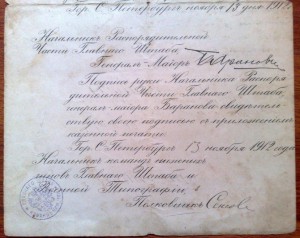 Гор. С. Петербургъ ноября 13 дня 1912
Начальникъ Распорядительной
Части Главнаго Штаба
Генералъ-Маіоръ Барановъ
Подпись руки Начальника Распоря
дительной Части Главнаго Штаба
генералъ маіора Баранова свидетель
ствую своею подписью съ приложеніемъ
казенной печати
Гор. С. Петербургъ 13 ноября 1912 года
Начальникъ команды нижнихъ
чиновъ Главнаго Штаба и
Военной Типографіи,
Полковникъ